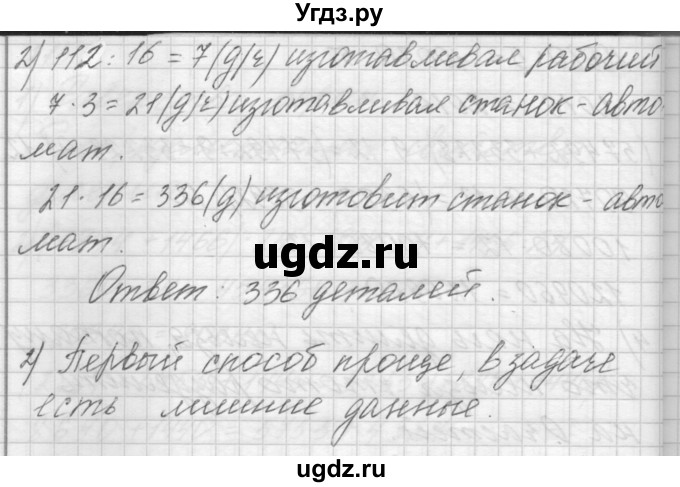 Угдз.ру
2) 112 : 16 = 7 (д/ч) изготавливал рабочий
7 · 3 = 21 (д/ч) изготавливал станок - авто-
мат.
21 · 16 = 336 (д) изготовит станок - авто
мат.
ugdz.ru
Ответ : 336 деталей.
2) Первый способ проще, в задаче
есть лишние данные.
ugdz.ru